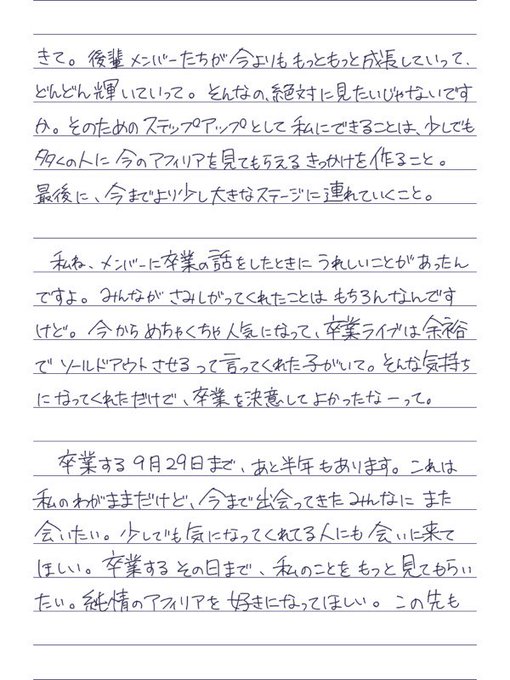 きて。後輩メンバーたちが今よりももっともっと成長していって、
どんどん輝いていって。そんなの、絶対に見たいじゃないです
か。そのためのステップアップとして私にできることは、少しでも
多くの人に今のアフィリアを見てもらえるきっかけを作ること。
最後に、今までより少し大きなステージに連れていくこと。
私ね、メンバーに卒業の話をしたときにうれしいことがあったん
ですよ。みんながさみしがってくれたことはもちろんなんです
けど。今からめちゃくちゃ人気になって、卒業ライブは余裕
でソールドアウトさせるって言ってくれた子がいて。そんな気持ち
になってくれただけで、卒業を決意してよかったなーって。
卒業する9月29日まで、あと半年もあります。これは
私のわがままだけど、今まで出会ってきたみんなにまた
会いたい。少しでも気になってくれてる人にも会いに来て
ほしい。卒業するその日まで、私のことをもっと見てもらい
たい。純情のアフィリアを好きになってほしい。この先も